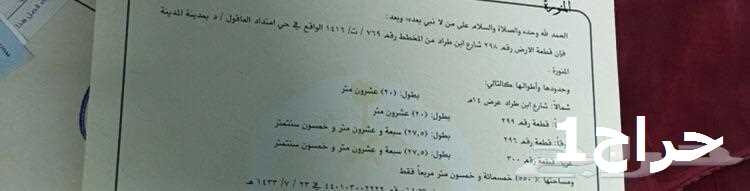 المنورة
الحمد لله وحده والصلاة والسلام على من لا نبي بعده، وبعد:
فإن قطعة الارض رقم ٢٩٨ شارع ابن طراد من المخطط رقم ٧٦٩ / ت/ ١٤١٦ الواقع في حي امتداد العاقول / د بمدينة المدينة
المنورة .
وحدودها وأطوالها كالتالي:
شمالاً: شارع ابن طراد عرض ١٤م بطول: (٢٠) عشرون متر
قطعة رقم ٢٩٩ بطول: (٢٠) عشرون متر
قطعة رقم ٢٩٦ بطول: (٢٧,٥) سبعة و عشرون متر و خمسون سنتمتر
قطعة رقم ٣٠٠ بطول: (٢٧,٥) سبعة و عشرون متر و خمسون سنتمتر
ومساحتها: (٥٥٠) خمسمائة و خمسون متر مربعاً فقط
في ٢٣ / ٧/ ١٤٣٣ هـ
حراج1